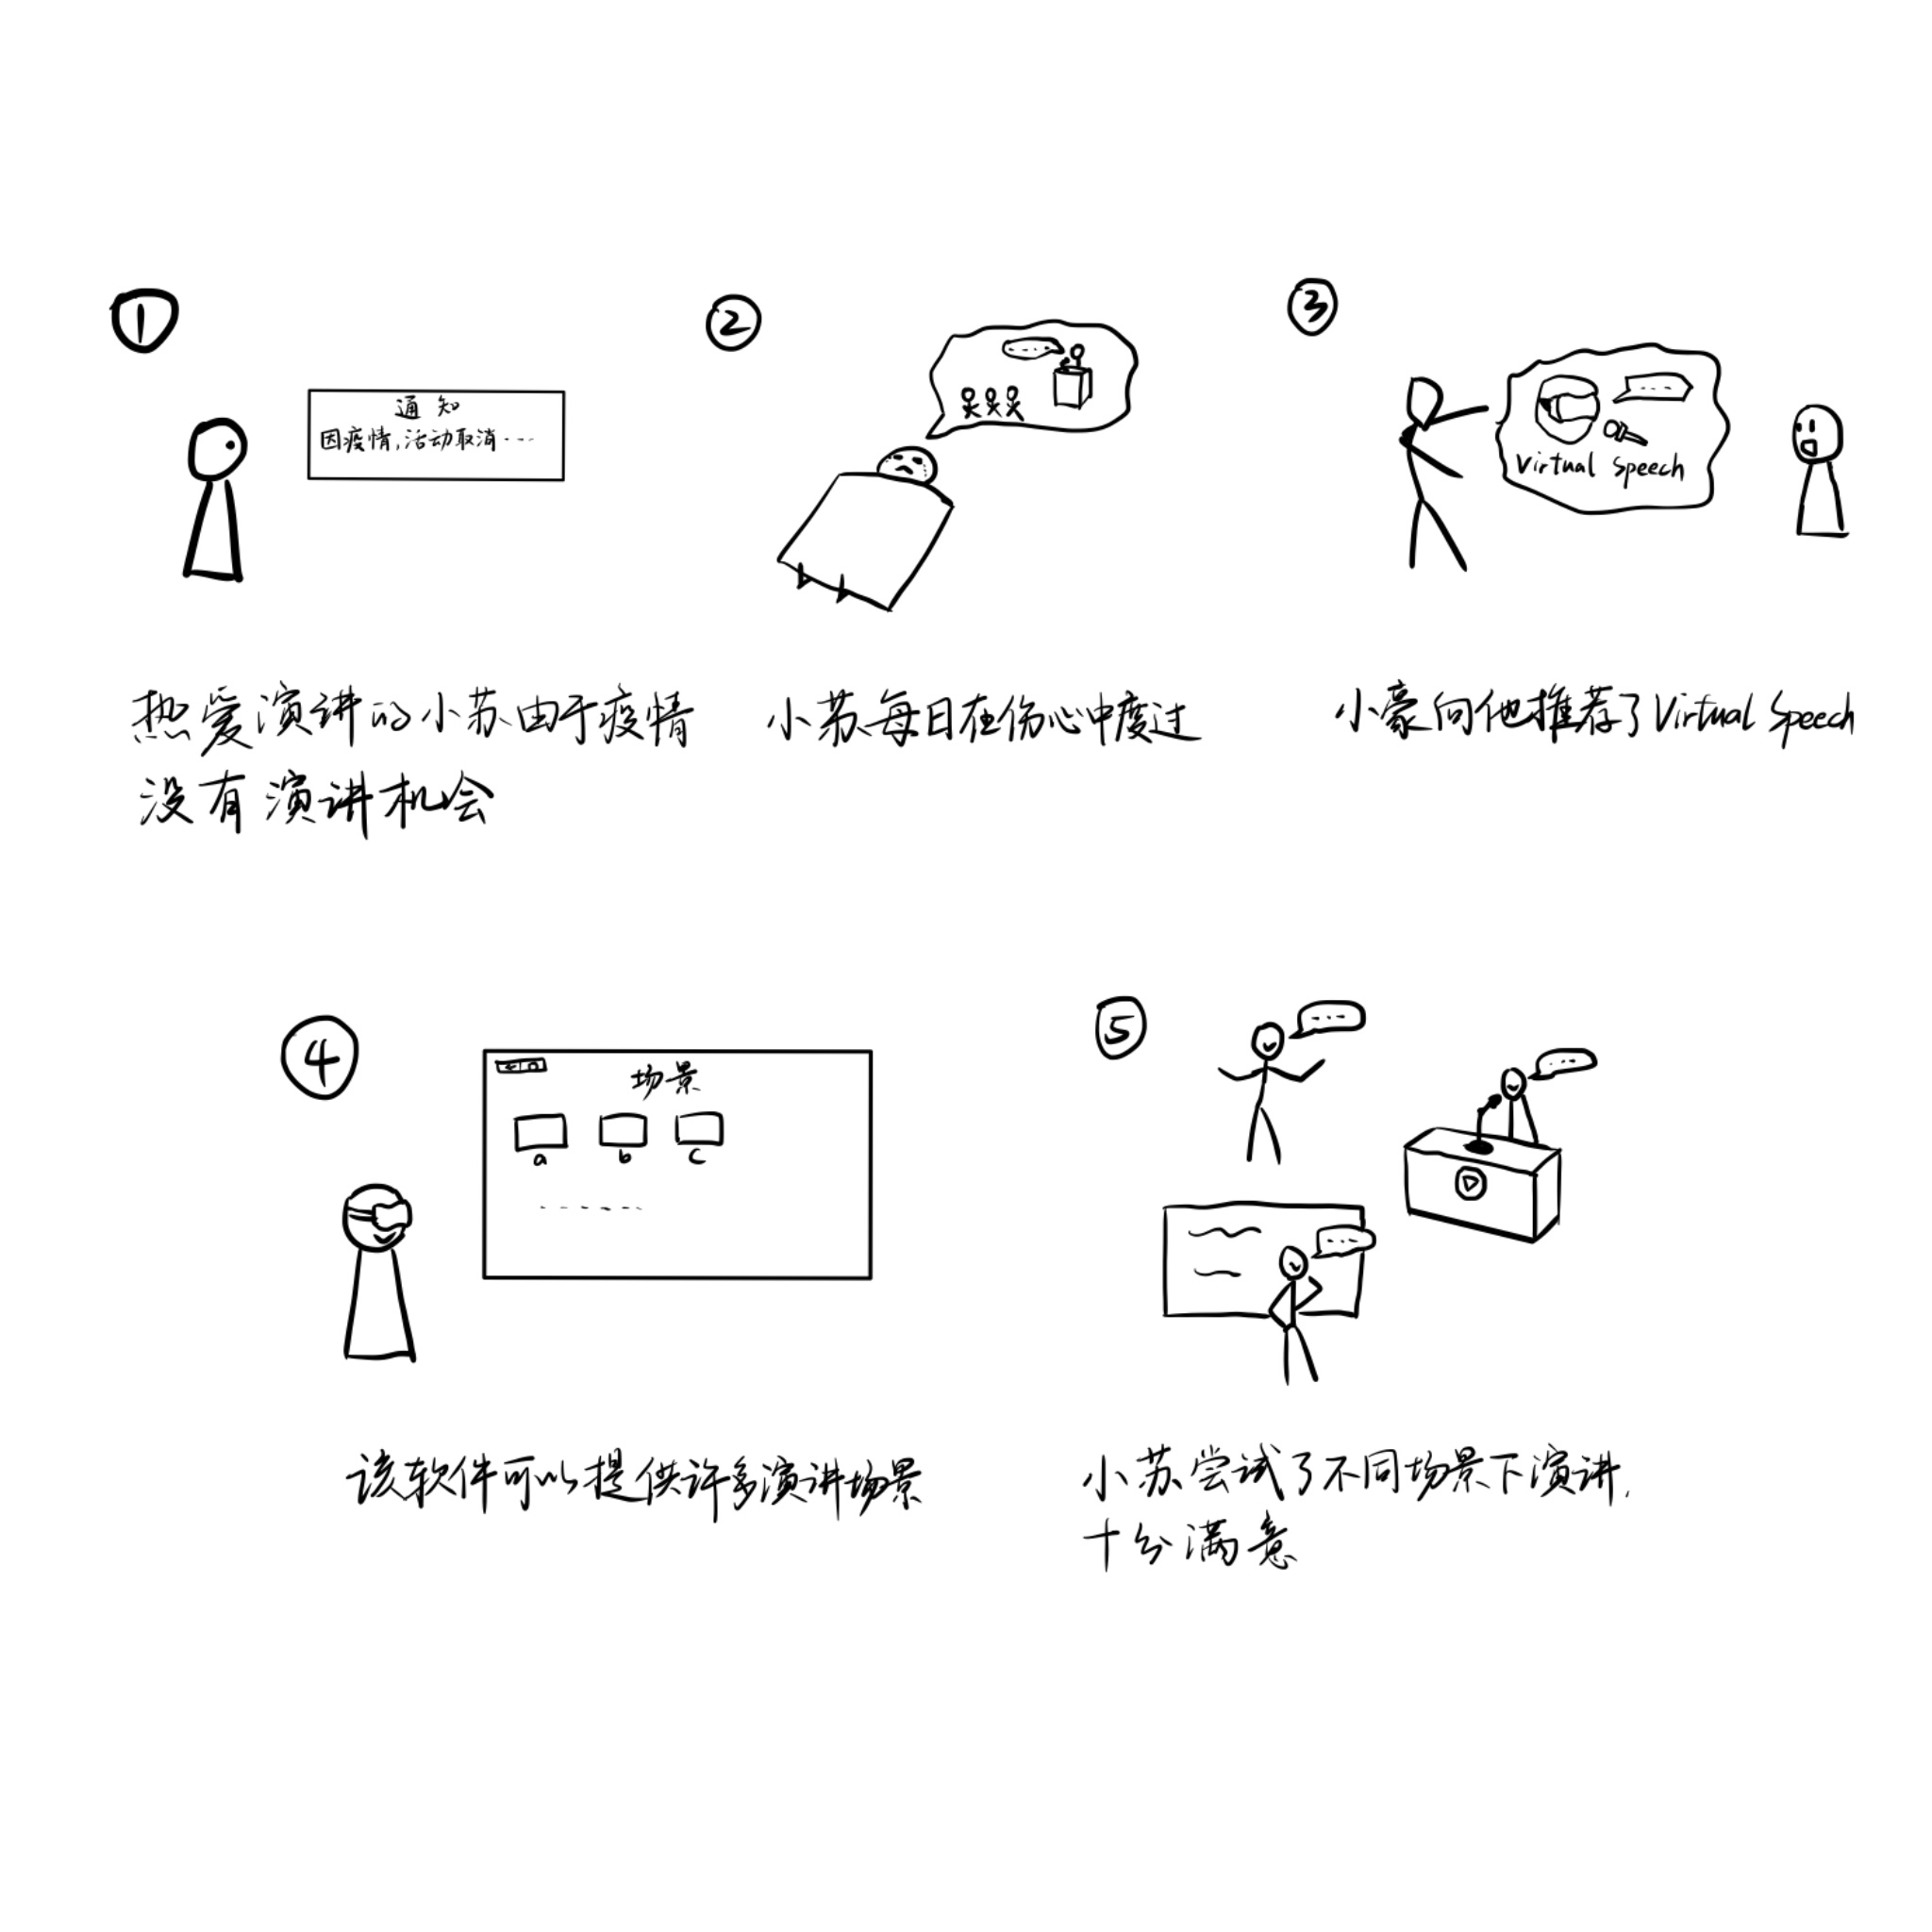 ①
通知
因疫情,活动取消……
热爱演讲的小苏由于疫情
没有演讲机会
②
小苏每日在伤心中度过
③
Virtual Speech
小豪向他推荐了Virtual Speech
④
场景
a b c
该软件可以提供许多演讲场景
⑤
小苏尝试了不同场景下演讲,
十分满意